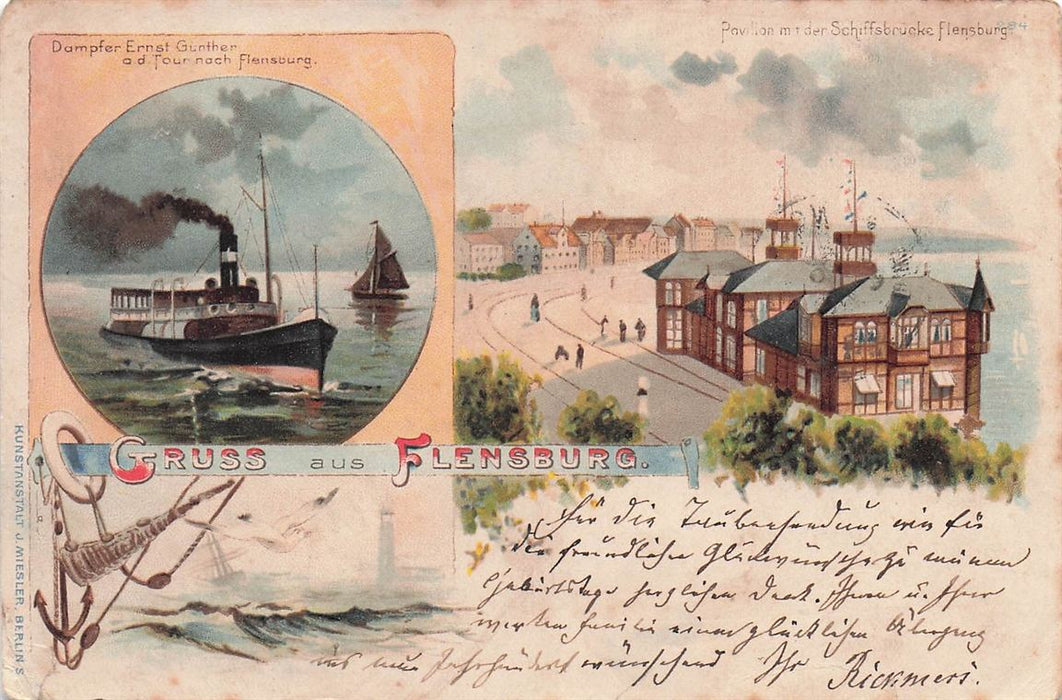 Dampfer Ernst Günther
a d Tour nach Flensburg.
Pavillon mit der Schiffsbrücke Flensburg
284
GRUSS AUS FLENSBURG.
KUNSTANSTALT J. MIESLER, BERLIN S
Für die Taubensendung wie für
die freundlichen Glückwünsche zu meinem
Geburtstage herzlichen Dank. Ihnen u. Ihrer
werten Familie einen glücklichen Übergang
ins neue Jahrhundert wünschend Ihr Rickmers.